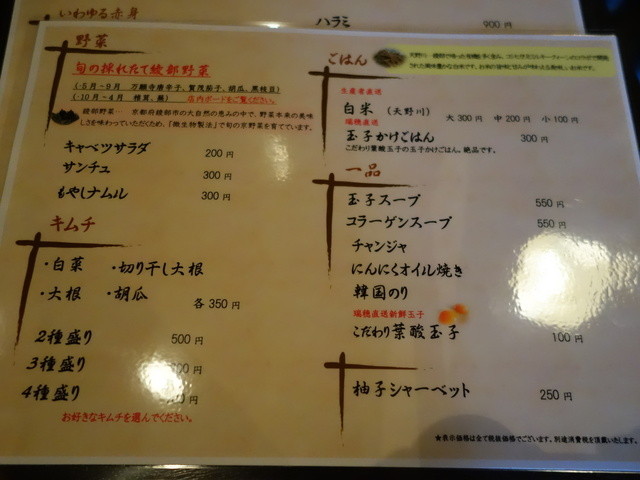 いわゆる赤身
ハラミ
900 円
野菜
旬の採れたて綾部野菜
(・5月～9月 万願寺唐辛子、賀茂茄子、胡瓜、黒枝豆)
店内ボードをご覧ください。
綾部野菜… 京都府綾部市の大自然の恵みの中で、野菜本来の美味
しさを味わっていただくため、「微生物製法」で旬の京野菜を育てています。
キャベツサラダ 200 円
サンチュ 300 円
もやしナムル 300 円
キムチ
・白菜 ・切り干し大根
・大根 ・胡瓜 各 350 円
2種盛り 500 円
3種盛り
4種盛り
お好きなキムチを選んでください。
ごはん
生産者直送
白米 (天野川) 大 300 円 中 200 円 小 100 円
瑞穂直送
玉子かけごはん 300 円
こだわり葉酸玉子の玉子かけごはん。絶品です。
一品
玉子スープ 550 円
コラーゲンスープ 550 円
チャンジャ
にんにくオイル焼き
韓国のり
瑞穂直送新鮮玉子
こだわり葉酸玉子 100 円
柚子シャーベット 250 円
★表示価格は全て税抜価格でございます。別途消費税を頂戴いたします。